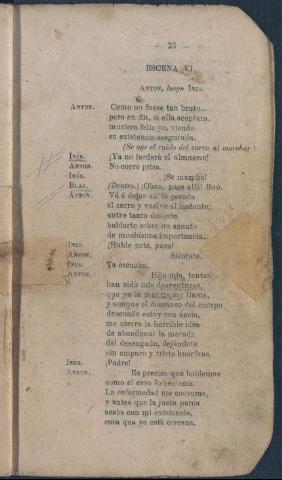 — 23 —
ESCENA VI.
ANTON, luego INES.
ANTON. Como no fuese tan bruto..
pero en fin, si ella aceptara,
muriera feliz yo, viendo
su existencia asegurada.
(Se oye el ruido del carro al marchar.)
INÉS. ¡Ya no tardará el almuerzo!
ANTON. No corre prisa.
INÉS. ¡Se marcha!
BLAS. (Dentro.) ¡Oboo, pasa allá! Boó.
ANTON. Vá á dejar en la posada
el carro y vuelve al instante;
entre tanto deseaba
hablarte sobre un asunto
de muchísima importancia..
INES. ¡Hable usté, pues!
ANTON. Siéntate.
INES. Ya escucho.
ANTON. Hija mia, tantas
han sido mis desventuras,
que ya la muerte me llama,
y aunque el descanso del cuerpo
deseando estoy con ánsia,
me aterra la horrible idea
de abandonar la morada
del desengaño, dejándote
sin amparo y triste huérfana.
INÉS. ¡Padre!
ANTON. Es preciso que hablemos
como el caso lo reclama.
La enfermedad me consume,
y antes que la justa parca
acabe con mi existencia,
cosa que ya está cercana,